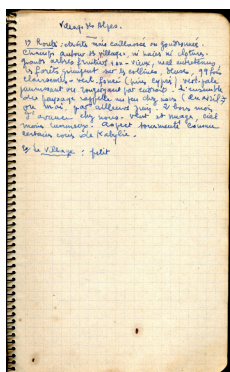 Village des Alpes.
1) Route : étroite mais caillassée ou goudronnée.
Champs autour des villages, ni haies ni clôtures.
Grands arbres fruitiers, vieux, mal entretenus
Les forêts grimpent sur les collines, bleues,
clairsemées - vert foncé (pins cyprès) vert pâle
jaunissant ou rougeoyant par endroit. L'ensemble
du paysage rappelle un peu chez nous (en Avril
ou mai, par ailleurs juin. 2 bons mois
d'avance chez nous. Vent et nuages, ciel
moins lumineux. Aspect tourmenté comme
certains coins de Kabylie.
2) Le village : petit